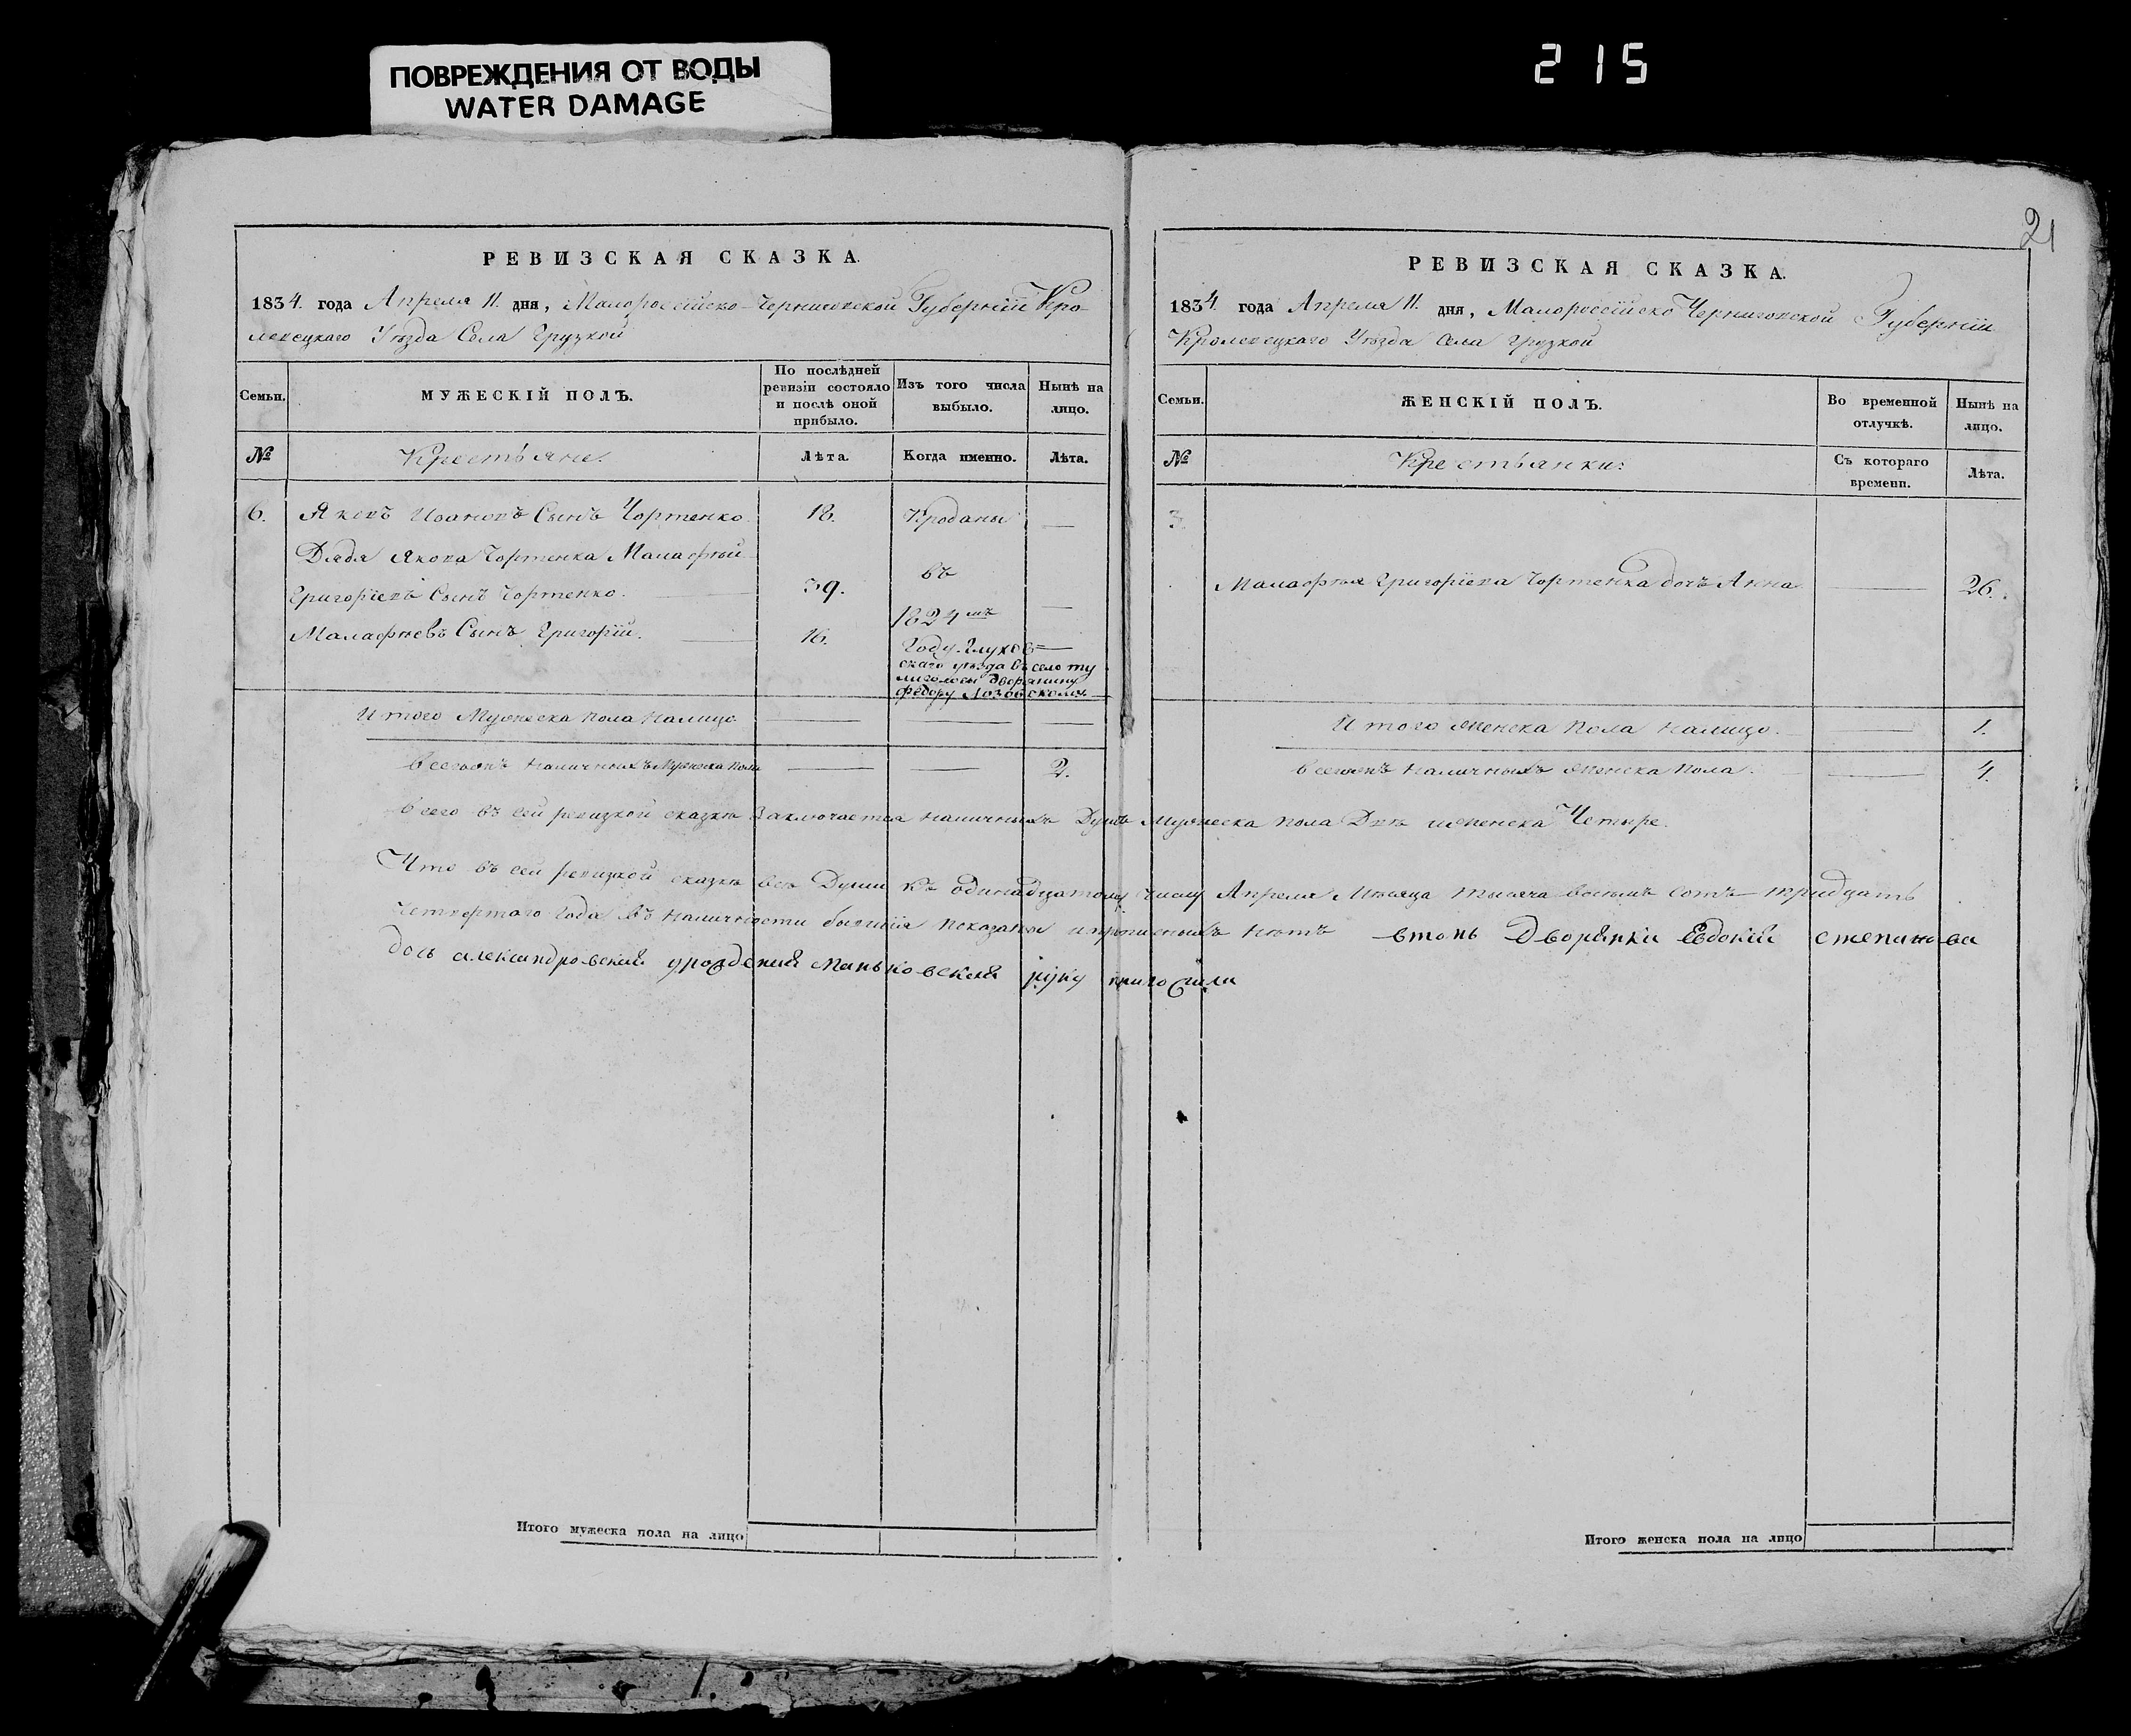 ПОВРЕЖДЕНИЯ ОТ ВОДЫ
WATER DAMAGE
215
21
РЕВИЗСКАЯ СКАЗКА.
1834. года Апреля 11. дня, Малороссійско-Черниговской Губерніи Кро-
левецкаго Уѣзда Села Грузкой
Семьи.
МУЖЕСКІЙ ПОЛЪ.
По послѣдней
ревизіи состояло
и послѣ оной
прибыло.
Изъ того числа
выбыло.
Нынѣ на
лицо.
№
Крестьяне.
Лѣта.
Когда именно.
Лѣта.
6.
Яковъ Ивановъ Сынъ Чортенко
18.
Проданы
Дядя Якова Чортенка Малафѣй
Григоріевъ Сынъ Чортенко.
39.
въ
1824мъ
Малафѣевъ Сынъ Григорій.
16.
Году Глухов=
скаго уѣзда въ село ту
лиголовы дворянину
Федору Лозовскому
Итого Мужеска пола налицо
Всехъ наличныхъ Мужеска пола
2.
РЕВИЗСКАЯ СКАЗКА.
1834. года Апреля 11. дня, Малороссійско Черниговской Губерніи
Кролевецкаго Уѣзда Села Грузкой
Семьи.
ЖЕНСКІЙ ПОЛЪ.
Во временной
отлучкѣ.
Нынѣ на
лицо.
№
Крестьянки:
Съ котораго
времени.
Лѣта.
3.
Малафѣя Григоріева Чортенка дочь Анна
26.
Итого женска пола налицо.
1.
наличныхъ женска пола.
4.
Всего въ сей ревизкой сказкѣ заключается наличныхъ Душъ Мужеска пола Двѣ иженска Четыре.
Что въ сей ревизкой сказкѣ всѣ Души къ одинадцатому числу Апреля Мѣсяца тысяча восемъ сотъ тридцать
четвертаго года въ наличности бывшія показаны ипрописныхъ нѣтъ втомъ Дворянки Евдокіи степанова
дочь александровская урожденая Маньковская руку приложила
Итого мужеска пола на лицо
Итого женска пола на лицо